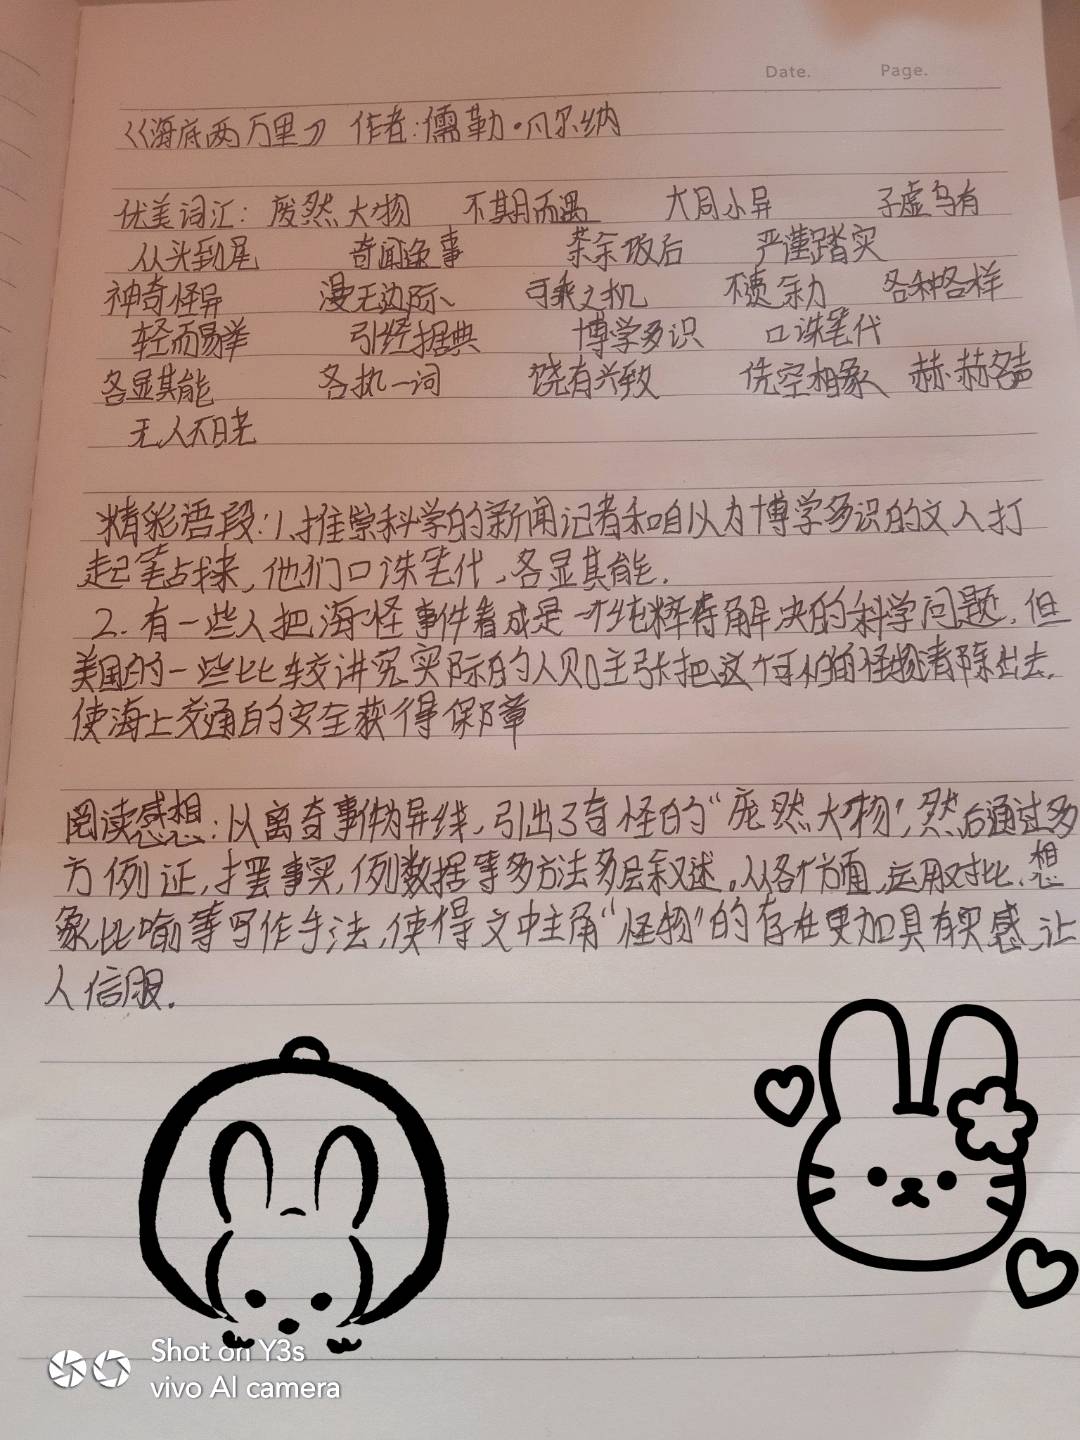 Date. Page.
《海底两万里》 作者:儒勒·凡尔纳
优美词汇: 庞然大物 不期而遇 大同小异 子虚乌有
从头到尾 奇闻逸事 茶余饭后 严谨踏实
神奇怪异 漫无边际、 可乘之机 不遗余力 各种各样
轻而易举 引经据典 博学多识 口诛笔伐
各显其能 各执一词 饶有兴致 凭空想象 赫赫名声
无人不晓
精彩语段:1、推崇科学的新闻记者和自以为博学多识的文人打
起笔战来,他们口诛笔伐,各显其能.
2.有一些人把海怪事件看成是一个纯粹待解决的科学问题,但
美国的一些比较讲究实际的人则主张把这个可怕的怪物清除出去,
使海上交通的安全获得保障
阅读感想:以离奇事件为导线,引出了奇怪的“庞然大物”,然后通过多
方例证,摆事实,例数据等多方法多层叙述。从各个方面,运用对比、想
象,比喻等写作手法,使得文中主角“怪物”的存在更加具有实感,让
人信服.
Shot on Y3s
vivo AI camera